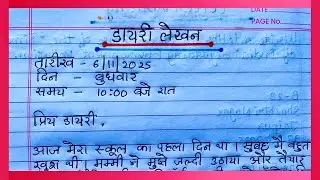 DATE
PAGE No.
डायरी लेखन
तारीख - 6/11/2025
दिन - बुधवार
समय - 10:00 बजे रात
प्रिय डायरी,
आज मेरा स्कूल का पहला दिन था। सुबह मैं बहुत
खुश थी। मम्मी ने मुझे जल्दी उठाया और तैयार